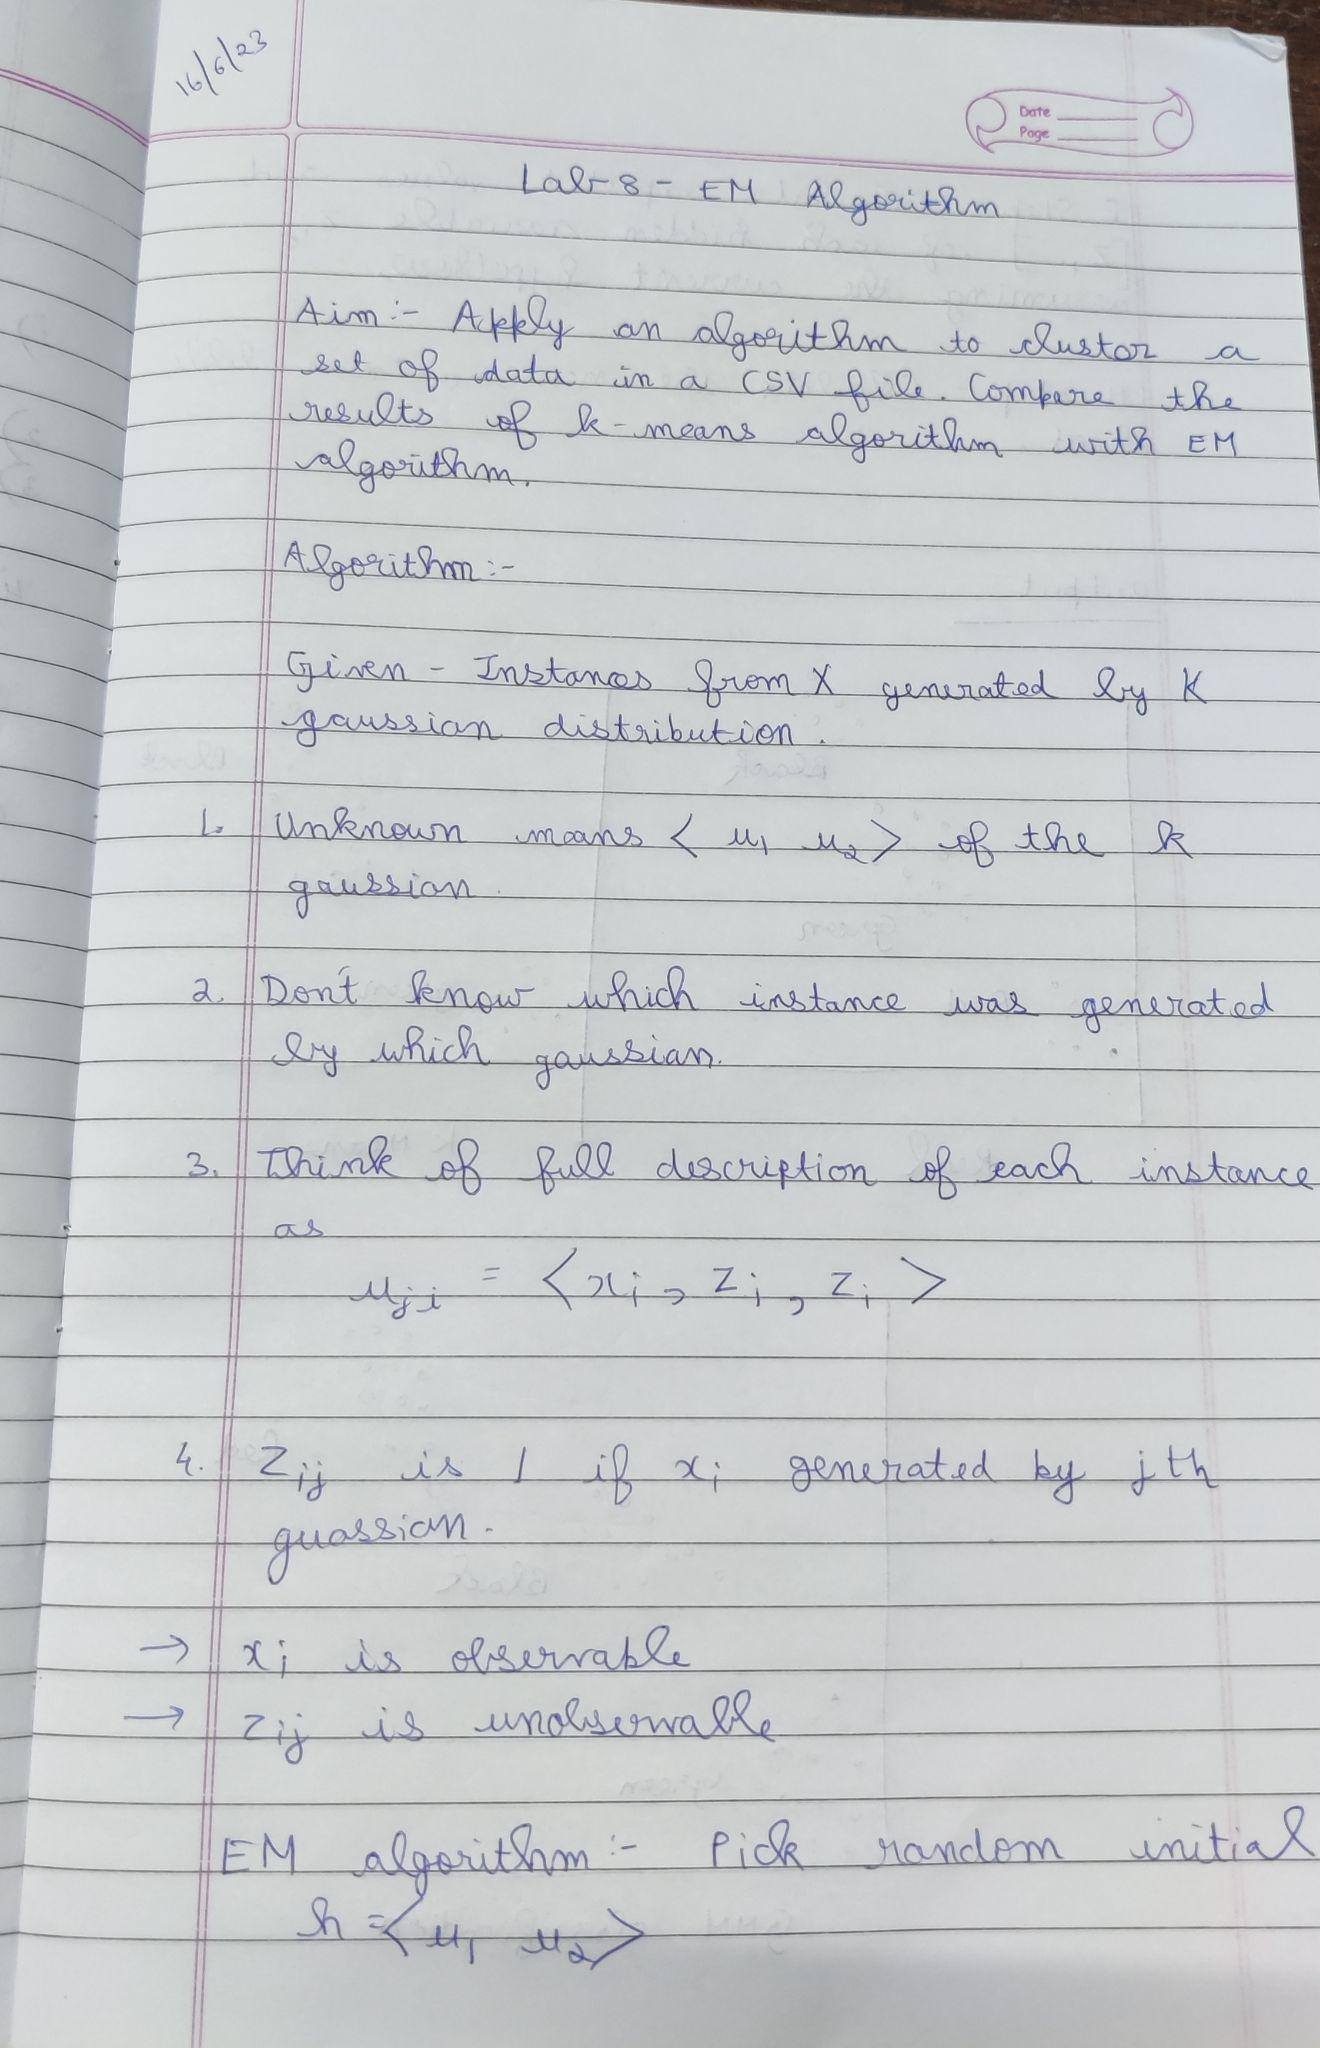 16/6/23
Date
Page
Lab-8 - EM Algorithm
Aim:- Apply an algorithm to cluster a
set of data in a CSV file. Compare the
results of k-means algorithm with EM
algorithm.
Algorithm:-
Given - Instances from X generated by K
gaussian distribution.
1. Unknown means < μ₁ μ₂ > of the k
gaussian
2. Don't know which instance was generated
by which gaussian.
3. Think of full description of each instance
as
μji = < xi, zi, zi >
4. Zij is 1 if xi generated by jth
guassian.
→ xi is observable
→ zij is unobservable
EM algorithm:- Pick random initial
h = < μ₁ μ₂ >